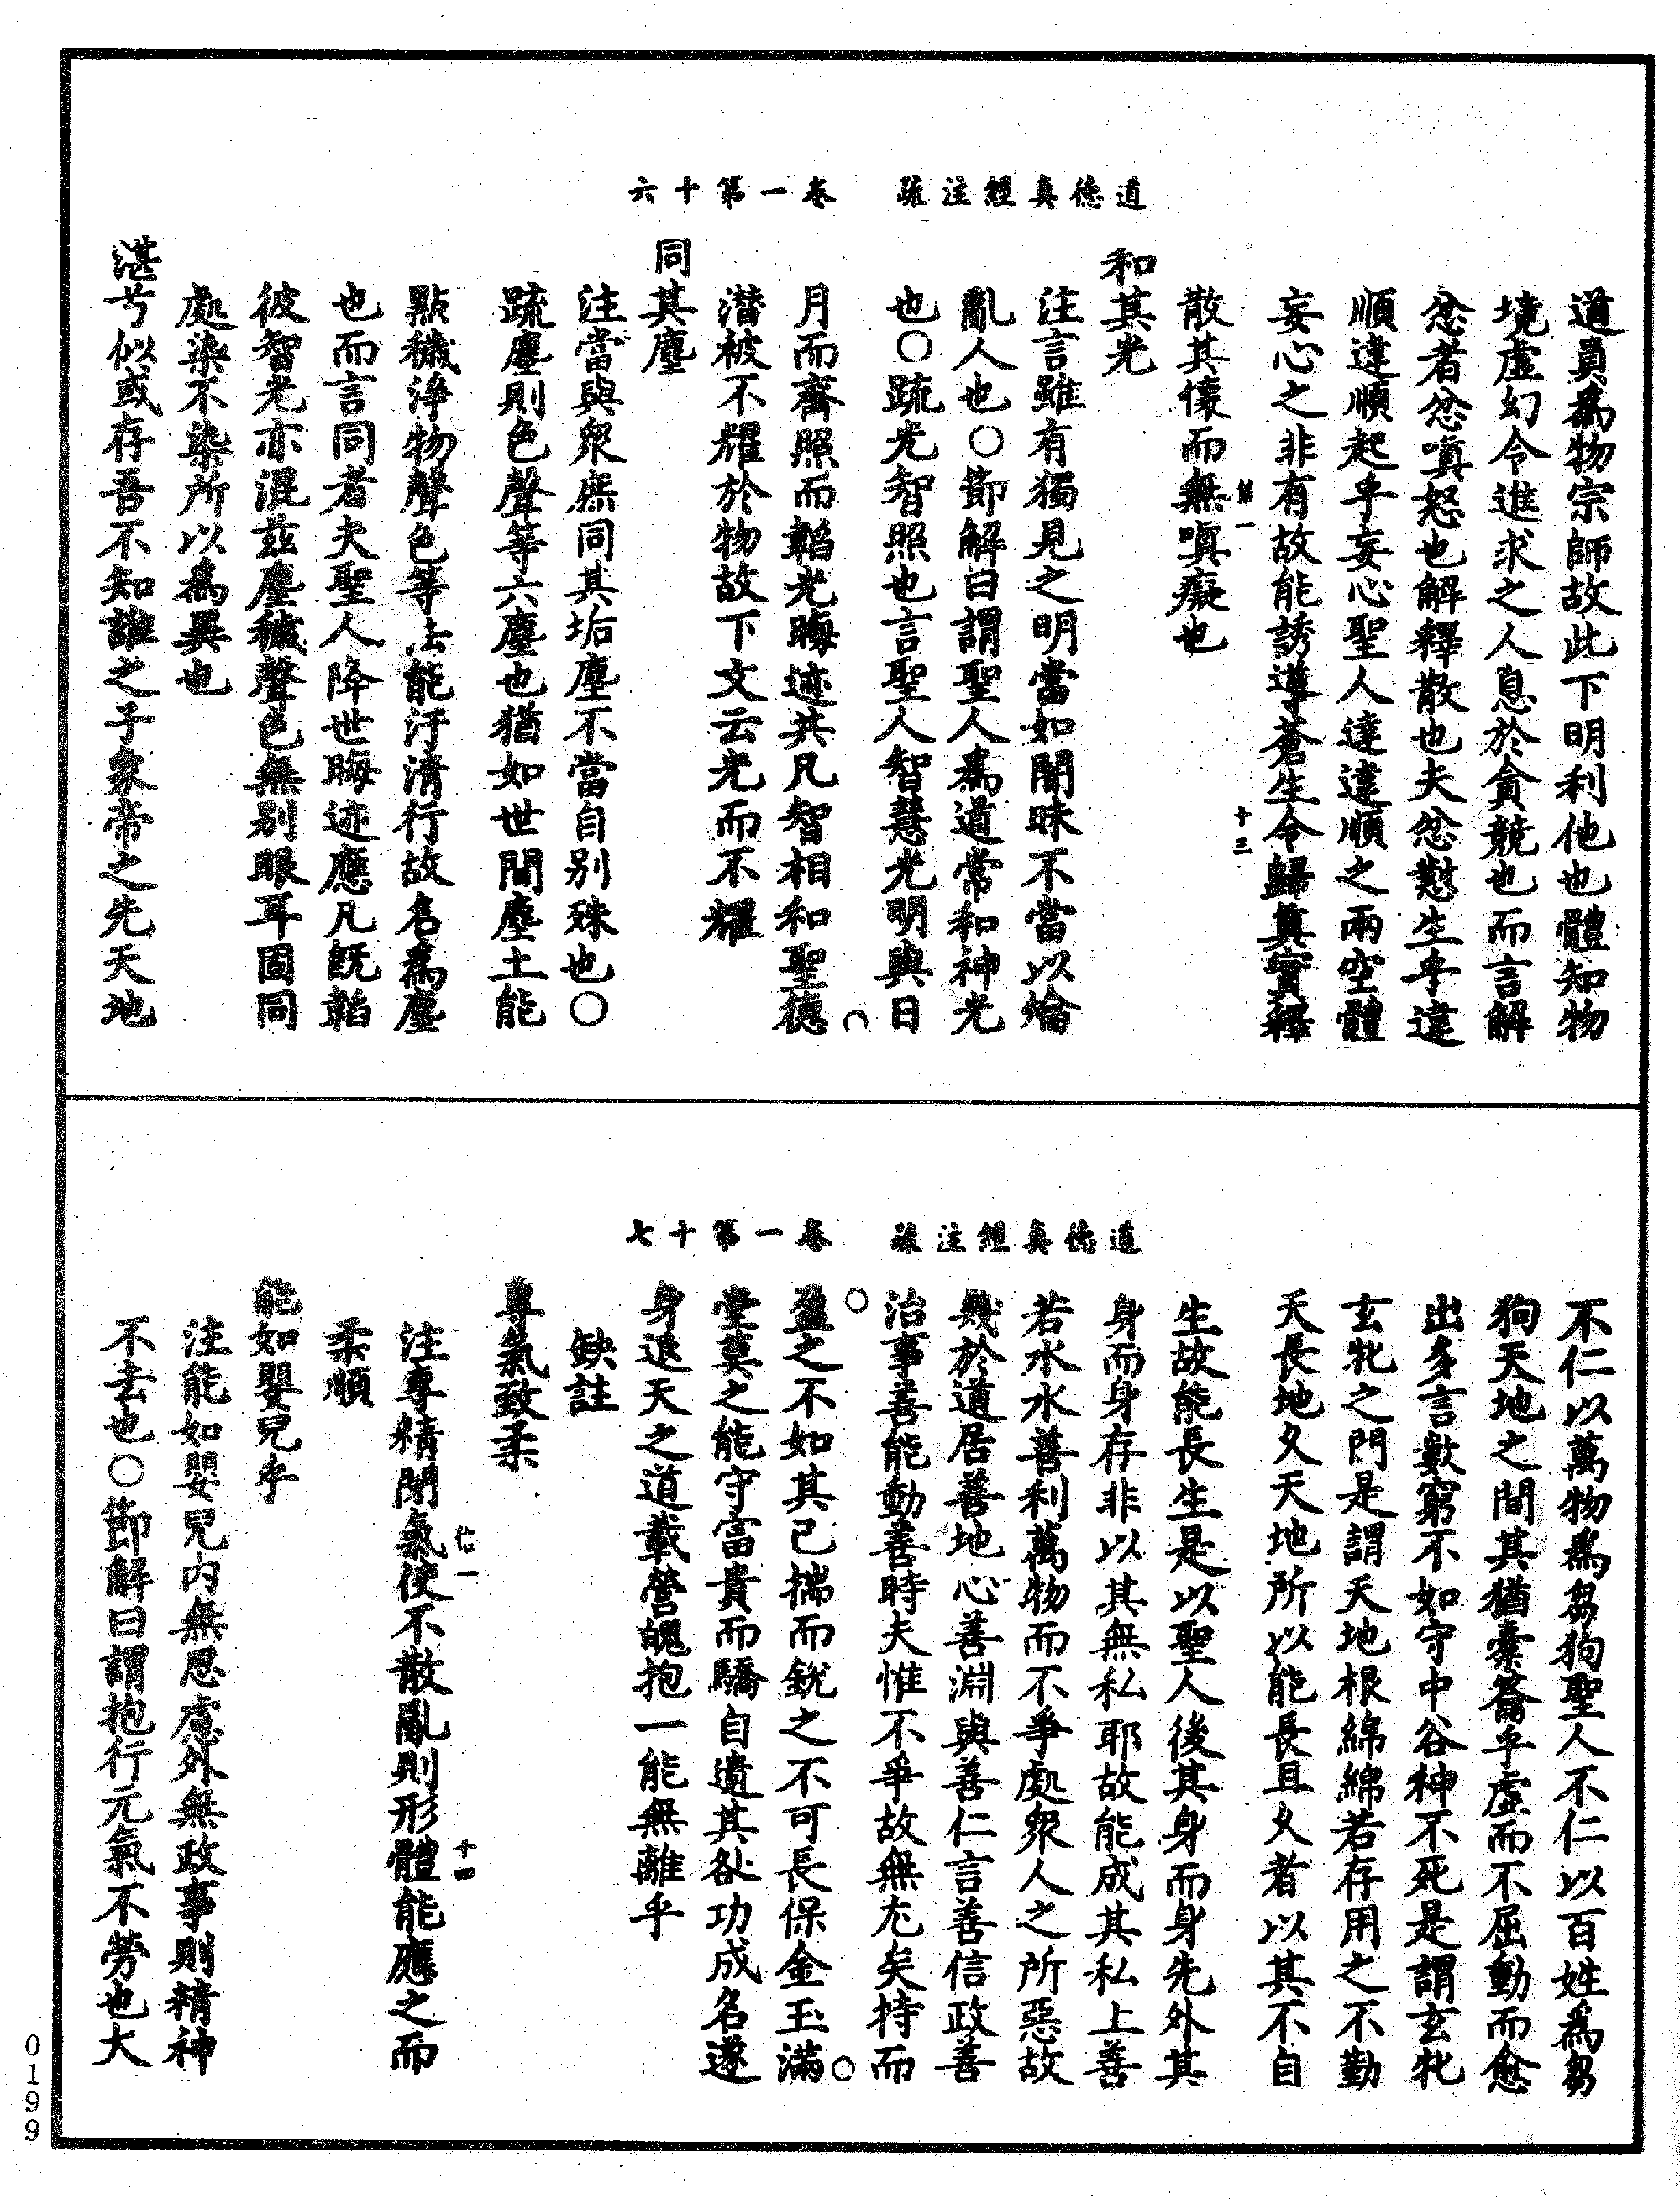 道德真經注疏　卷一第十六
道員為物宗師故此下明利他也體知物
境虛幻令進求之人息於貪競也而言解
忿者忿嗔怒也解釋散也夫忿懟生乎違
順違順起乎妄心聖人達違順之兩空體
妄心之非有故能誘導蒼生令歸真實釋
散其懷而無嗔癡也
和其光
注言雖有獨見之明當如闇昧不當以燿
亂人也○節解曰謂聖人為道常和神光
也○疏光智照也言聖人智慧光明與日
月而齊照而韜光晦迹共凡智相和聖德
潛被不耀於物故下文云光而不耀
同其塵
注當與衆庶同其垢塵不當自別殊也○
疏塵則色聲等六塵也猶如世間塵土能
點穢淨物聲色等法能汙清行故名為塵
也而言同者夫聖人降世晦迹應凡既韜
彼智光亦混茲塵穢聲色無別眼耳固同
處染不染所以為異也
湛兮似或存吾不知誰之子象帝之先天地
十三
道德真經注疏　卷一第十七
不仁以萬物為芻狗聖人不仁以百姓為芻
狗天地之間其猶橐籥乎虛而不屈動而愈
出多言數窮不如守中谷神不死是謂玄牝
玄牝之門是謂天地根綿綿若存用之不勤
天長地久天地所以能長且久者以其不自
生故能長生是以聖人後其身而身先外其
身而身存非以其無私耶故能成其私上善
若水水善利萬物而不爭處衆人之所惡故
幾於道居善地心善淵與善仁言善信政善
治事善能動善時夫惟不爭故無尤矣持而
盈之不如其已揣而銳之不可長保金玉滿
堂莫之能守富貴而驕自遺其咎功成名遂
身退天之道載營魄抱一能無離乎
缺註
專氣致柔
注專精閉氣使不散亂則形體能應之而
柔順
十四
能如嬰兒乎
注能如嬰兒内無思慮外無政事則精神
不去也○節解曰謂抱行元氣不勞也大
0199